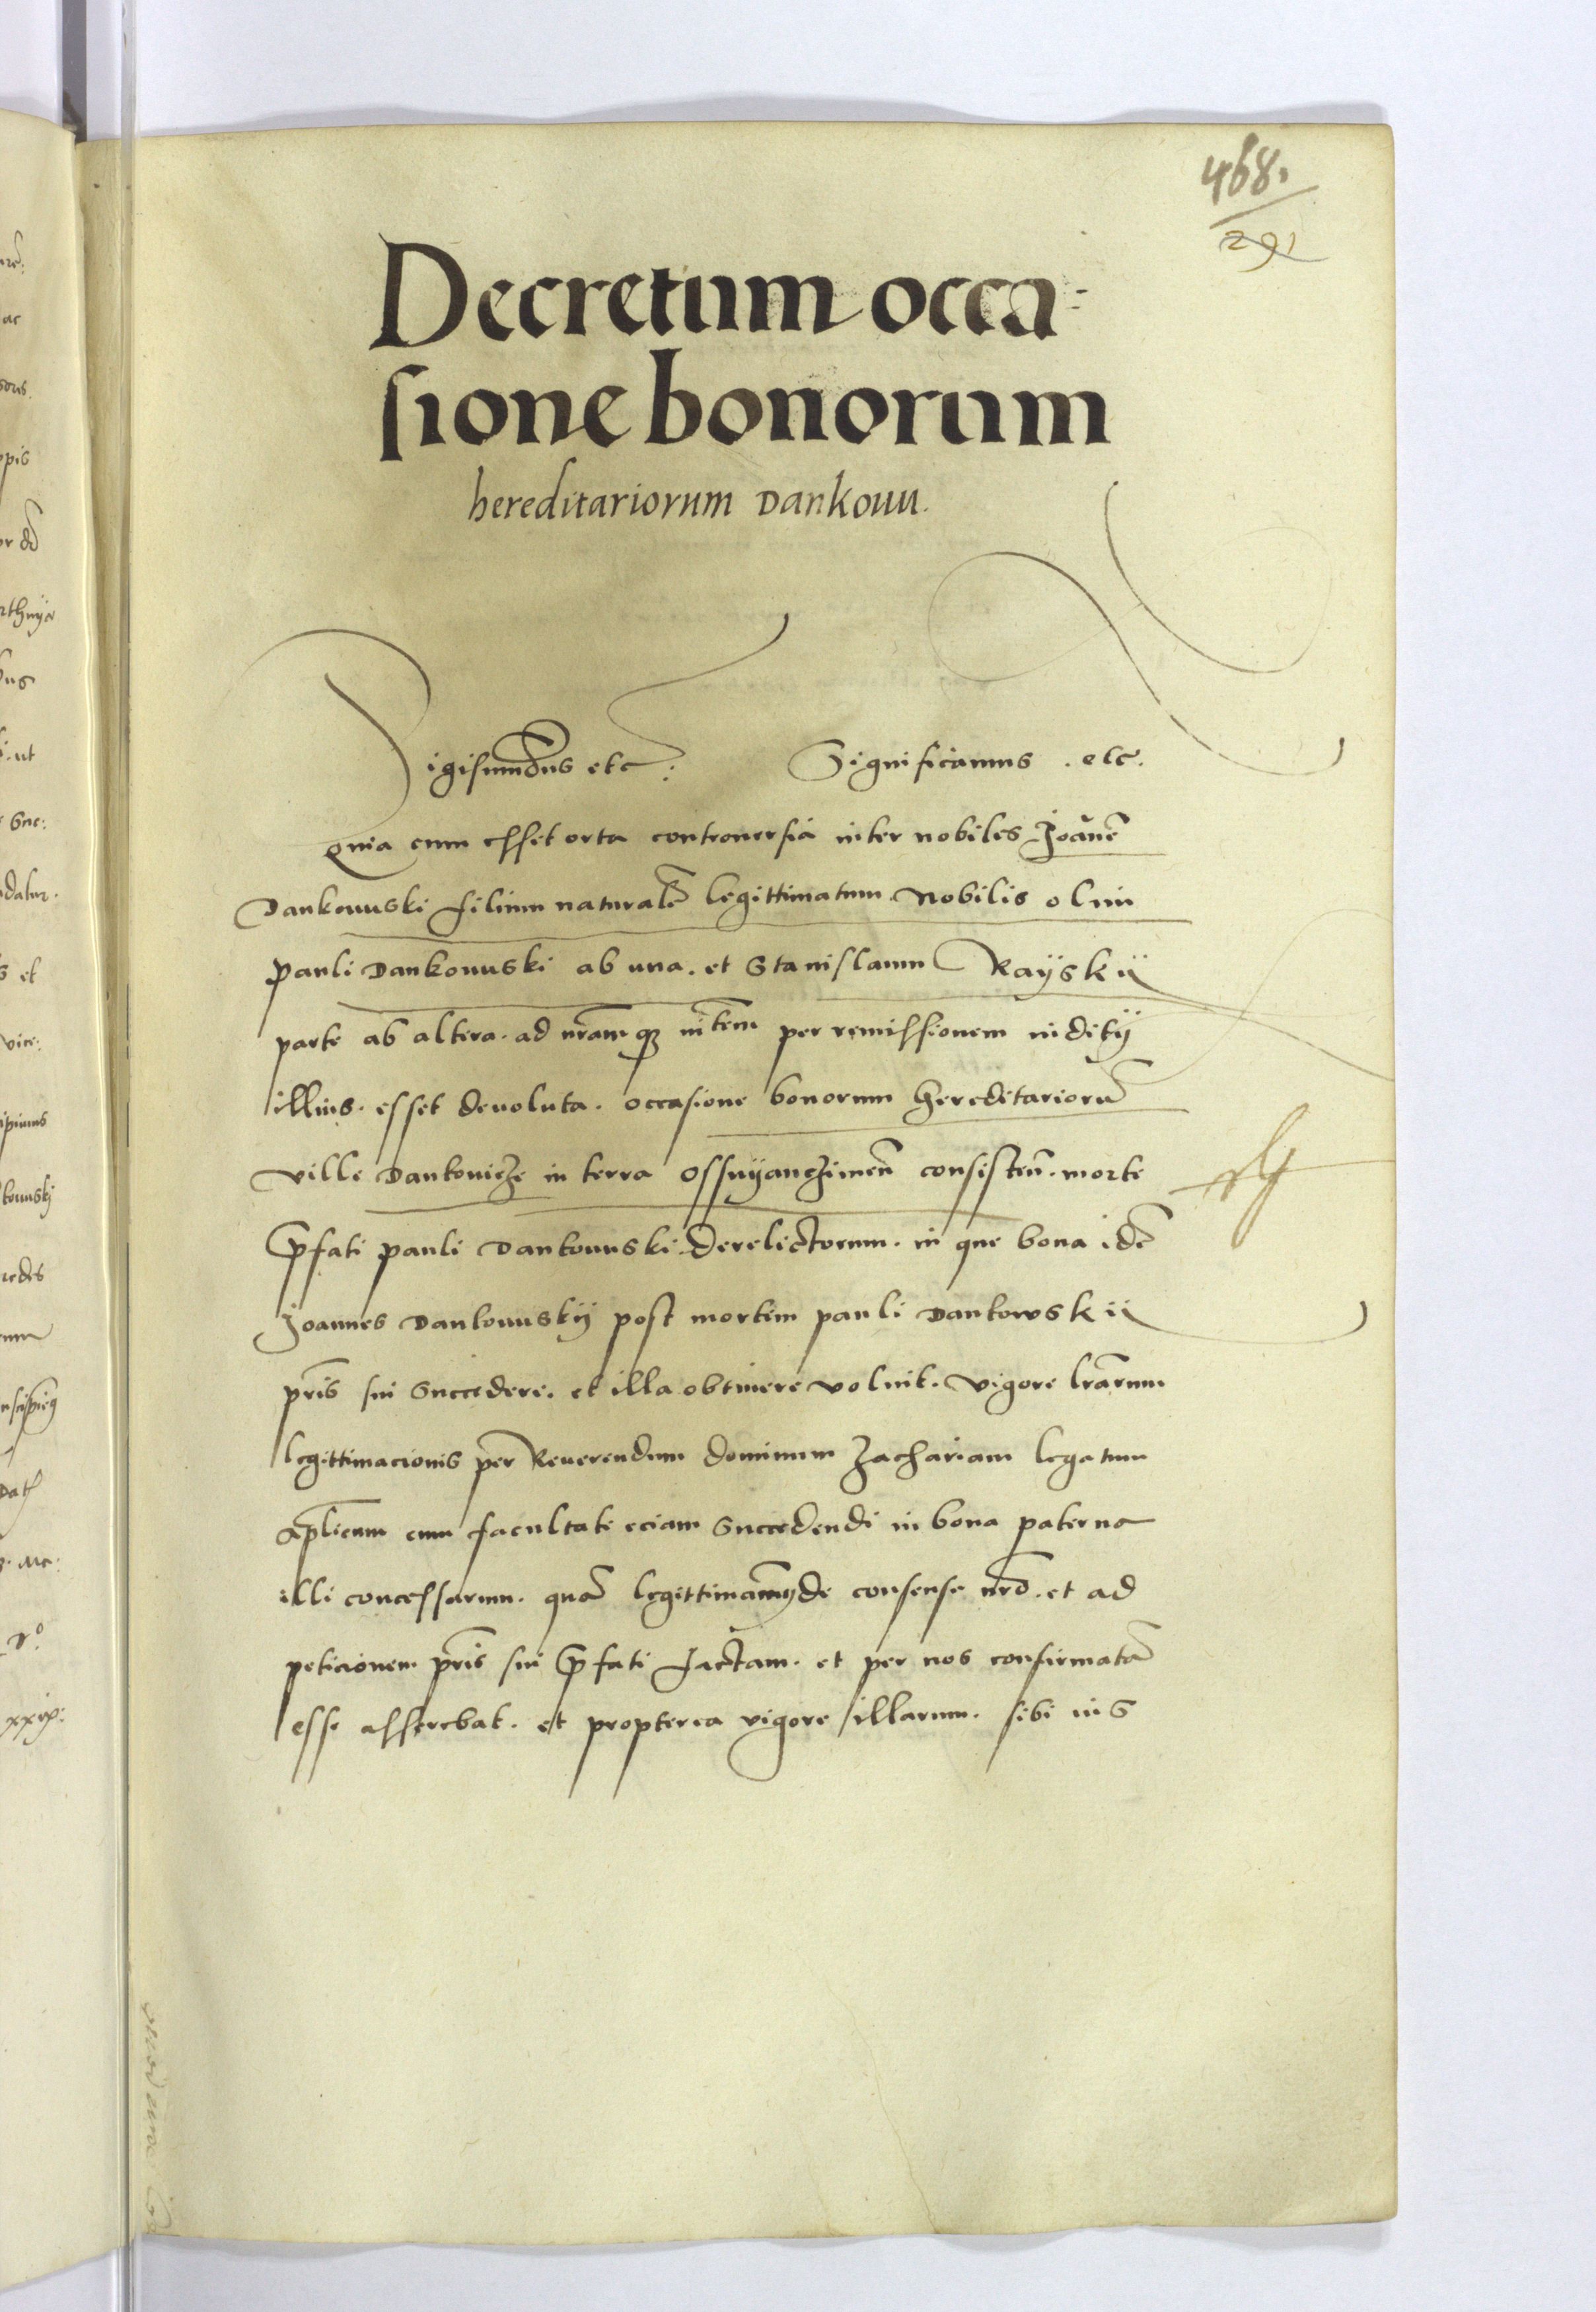 468.
291
Decretum occa-
sione bonorum
hereditariorum Dankouu.
Sigismundus etc: Significamus . etc.
Quia cum esset orta controuersia inter nobiles Joānē
Dankouuski filium naturalē legittimatum Nobilis olim
Pauli Dankouuski ab una. et Stanislaum Rayskii
parte ab altera. ad nrām
per remissionem iuditij
illius. esset deuoluta. occasione bonorum hereditariorū
ville Dankovicze in terra Osswyanczimeñ consisteñ. morte
p̄fati Pauli Dankouuski derelictorum. in que bona idē
Joannes Dankouuskij post mortem Pauli Dankowskii
pr̄is sui Succedere. et illa obtinere voluit. vigore lrārum
legittimacionis per Reuerendum dominum Zachariam legatum
ap̄licum cum facultate eciam Succedendi in bona paterna
illi concessarum. quā
de consensu nr̄o. et ad
peticionem pr̄is sui p̄fati factam. et per nos confirmatā
esse asserebat. et propterea vigore illarum. sibi ius